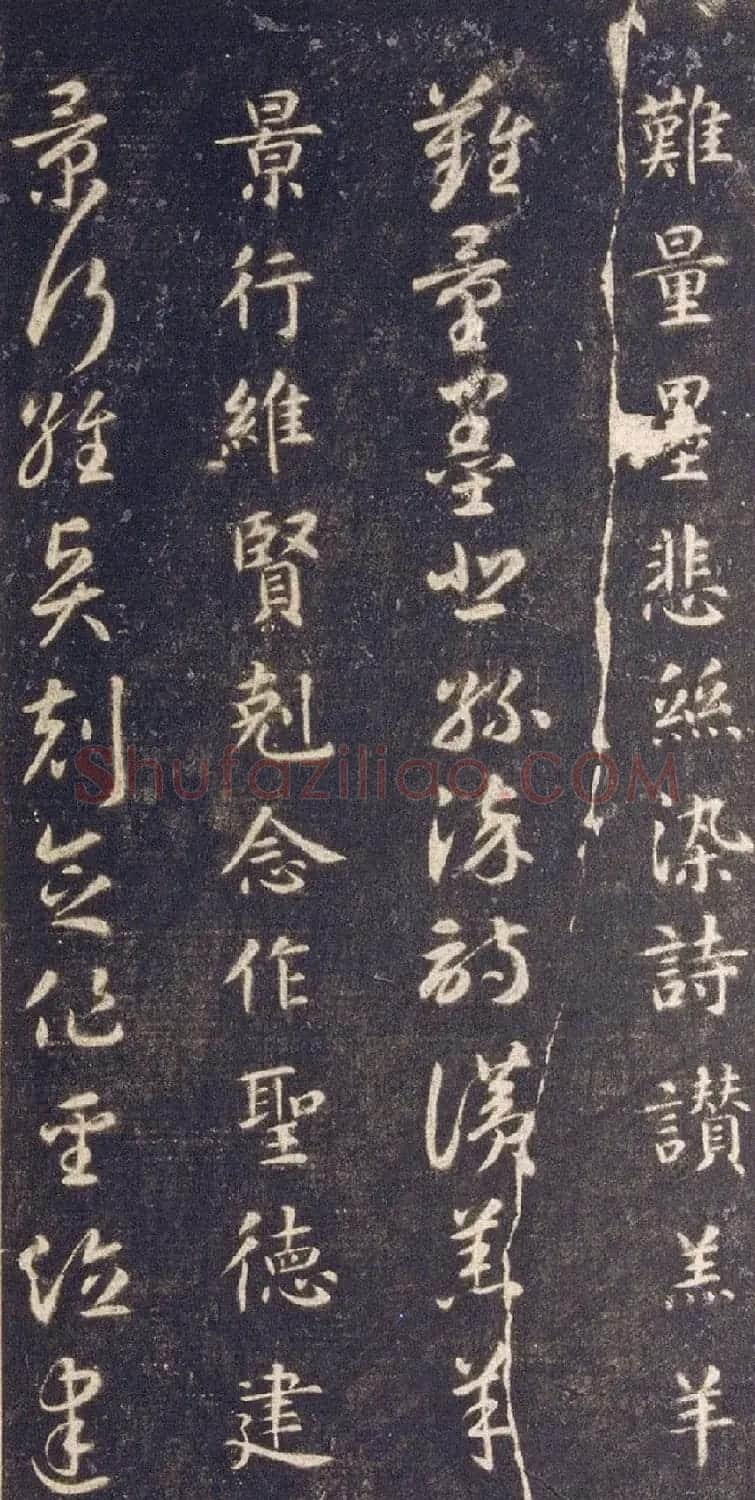 難量墨悲絲染詩讚羔羊
難量墨悲絲染詩讚羔羊
景行維賢剋念作聖德建
景行維賢剋念作聖德建
Shufaziliao.COM